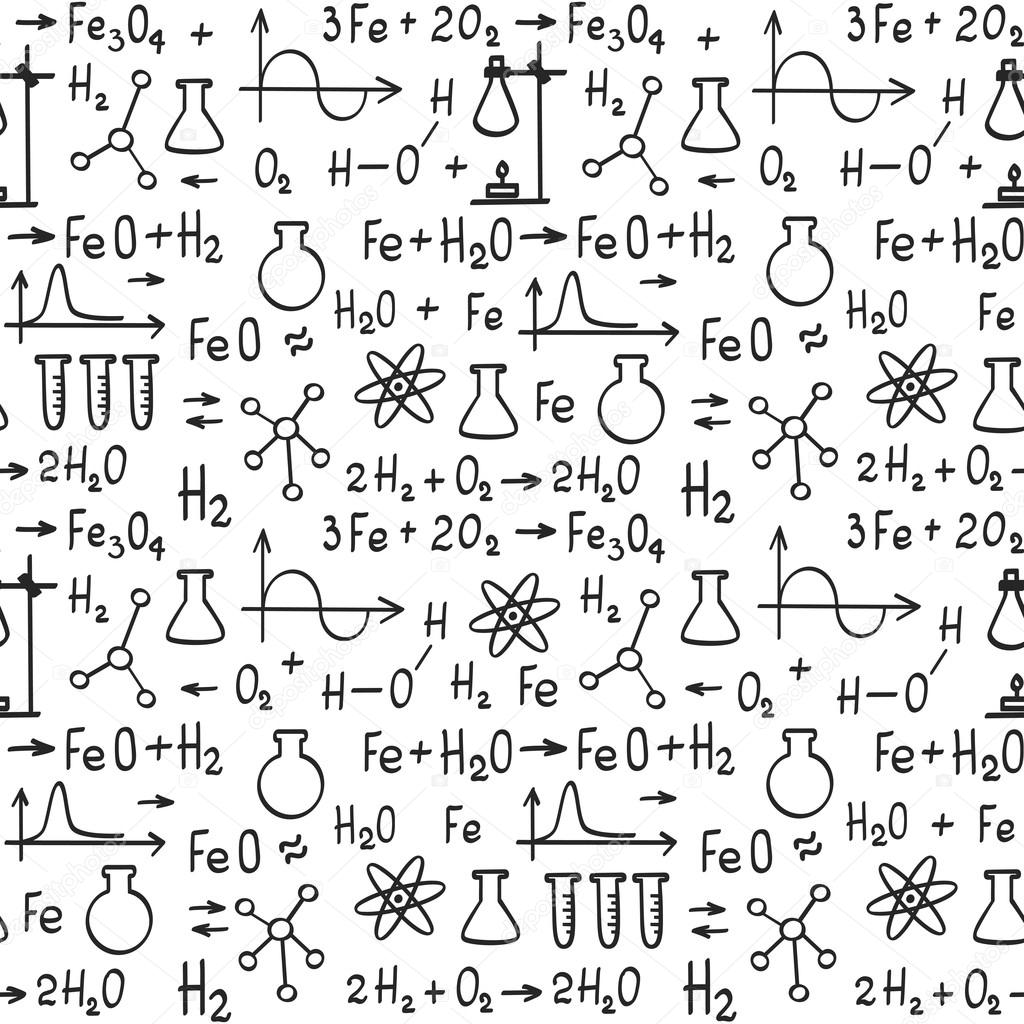 → Fe₃O₄ + 3Fe + 2O₂ → Fe₃O₄ + 3Fe + 2O₂
H₂ H H₂ H
← O₂ H–O + ← O₂ H–O +
→ FeO+H₂ Fe+H₂O → FeO+H₂ Fe+H₂O
→ H₂O + Fe → H₂O Fe
FeO ≈ FeO ≈
⇄ Fe ⇄
→ 2H₂O 2H₂ + O₂ → 2H₂O 2H₂ + O₂ -
H₂ H₂
→ Fe₃O₄ 3Fe + 2O₂ → Fe₃O₄ 3Fe + 2O₂
H₂ H H₂ H
← O₂ + H–O H₂ Fe ← O₂ + H–O
→ FeO+H₂ Fe+H₂O → FeO+H₂ Fe+H₂O
→ H₂O Fe → H₂O + Fe
FeO ≈ FeO ≈
Fe ⇄ ⇄
→ 2H₂O H₂ 2H₂ + O₂ → 2H₂O H₂ 2H₂ + O₂ -